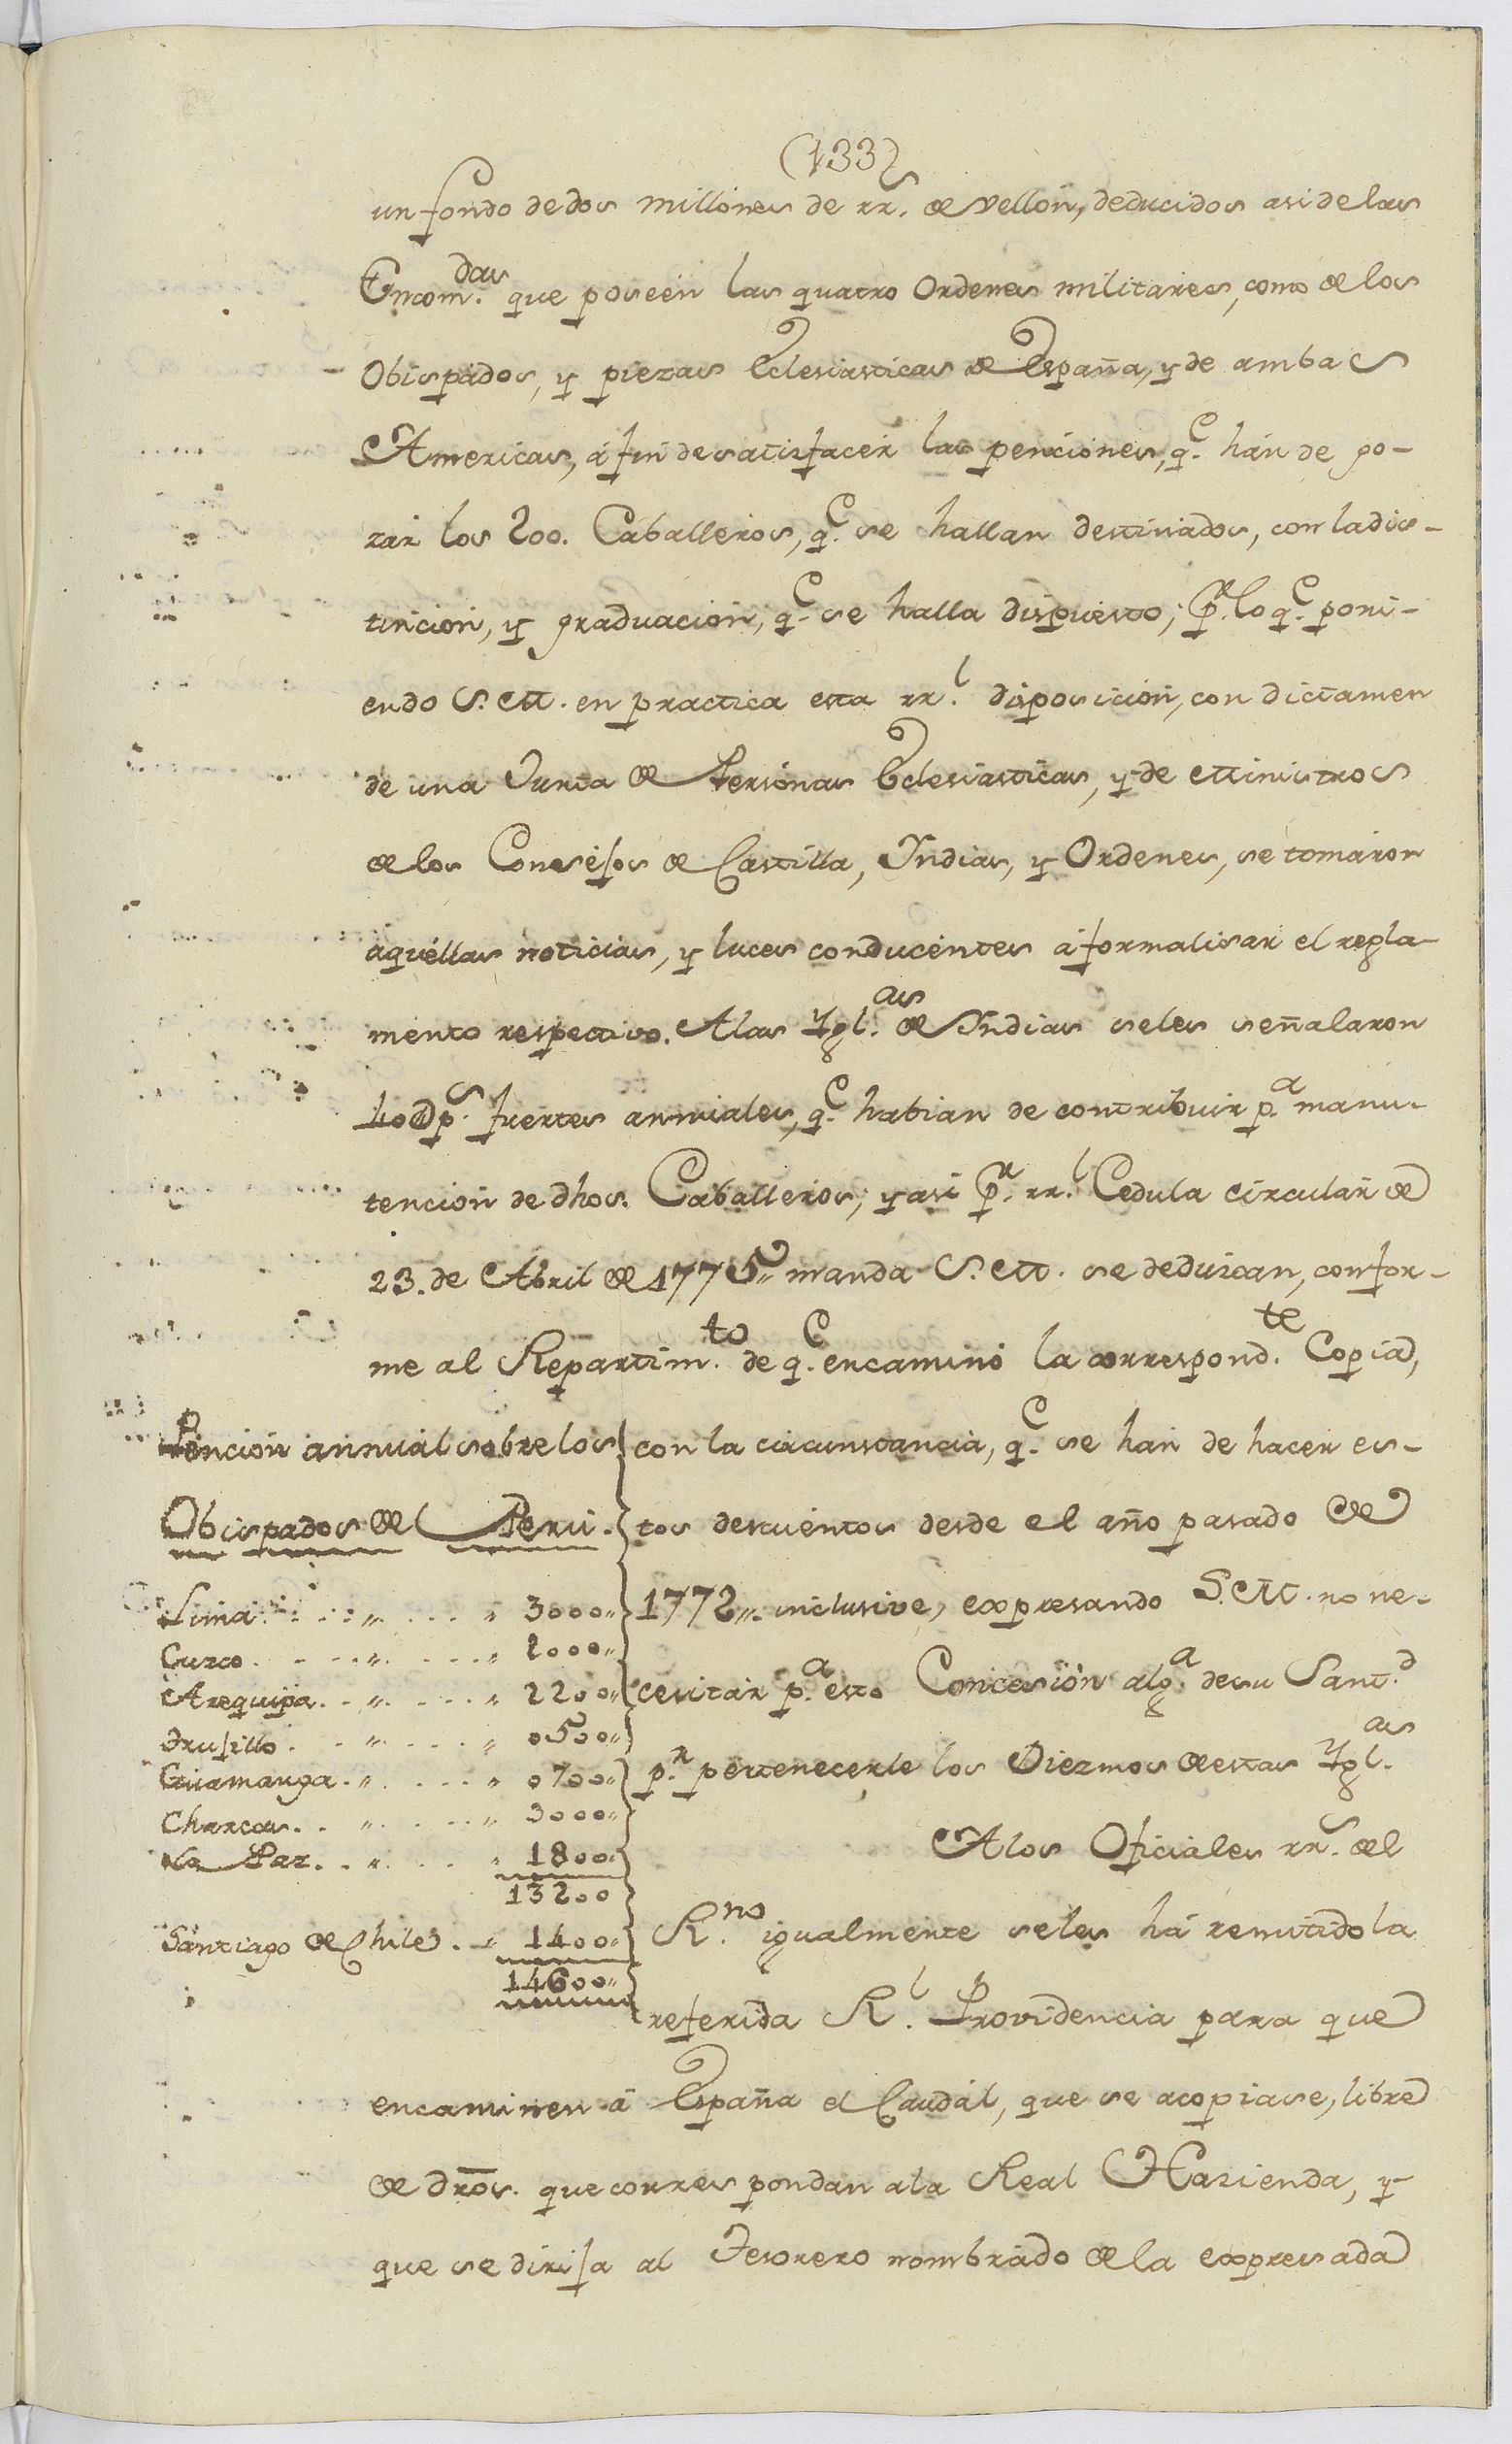 (133)
un fondo de dos millones de rrs. de vellon, deducidos asi de las
Encomdas. que poseen las quatro Ordenes militares, como de los
Obispados, y piezas Eclesiasticas de España, y de ambas
Americas, á fin de satisfacer las penciones, qe. hán de go-
zar los 200. Caballeros, qe. se hallan destinados, con la dis-
tincion, y graduacion, qe. se halla dispuesto; pr. lo qe. poni-
endo S. M. en practica esta rrl. disposicion, con dictamen
de una Junta de Personas Eclesiasticas, y de Ministros
de los Consejos de Castilla, Indias, y Ordenes, se tomaron
aquellas noticias, y luces conducentes á formalisar el regla-
mento respectivo. A las Yglas. de Indias se les señalaron
40@ps. fuertes annuales, qe. habian de contribuir pa. manu-
tencion de dhos. Caballeros; y asi pr. rrl. Cedula circular de
23. de Abril de 1775,, manda S. M. se deduzcan, confor-
me al Repartimto. de qe. encaminó la correspondte. Copia,
con la circunstancia, qe. se han de hacer es-
tos descuentos desde el año pasado de
1772,,. inclusive, expresando S. M. no ne-
cesitar pa. esto Concesion alga. de su Santd.
pr. pertenecerle los Diezmos de estas Yglas.
A los Oficiales rrs. del
Rno. igualmente se les há remitido la
referida Rl. Providencia para que
encaminen á España el Caudal, que se acopiase, libre
de dros. que correspondan a la Real Hazienda, y
que se dirija al Tesorero nombrado de la expresada
Pencion annual sobre los
Obispados del Perú.
Lima. . . . ,, . . . ,, 3000,,
Cuzco. . . . ,, . . . ,, 2000,,
Arequipa. . ,, . . . ,, 2200,,
Trujillo. . ,, . . . ,, 0500,,
Guamanga. ,, . . . ,, 0700,,
Charcas. . ,, . . . ,, 3000,,
La Paz. . ,, . . . ,, 1800,,
13200
Santiago de Chile. ,, 1400,,
14600,,